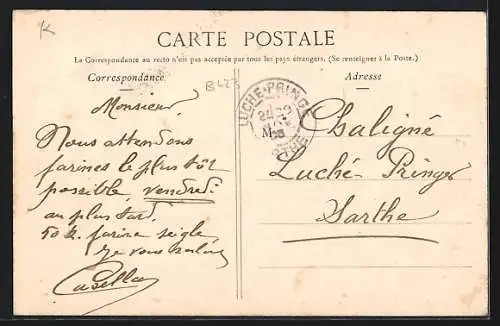 CARTE POSTALE
La Correspondance au recto n'est pas acceptée par tous les pays étrangers. (Se renseigner à la Poste.)
Correspondance
Adresse
B423
LUCHÉ-PRINGÉ
SARTHE
Monsieur
Nous attendons
farines le plus tôt
possible, vendredi
au plus tard.
50 k. farine seigle
Je vous salue
Chaligné
Luché-Pringé
Sarthe